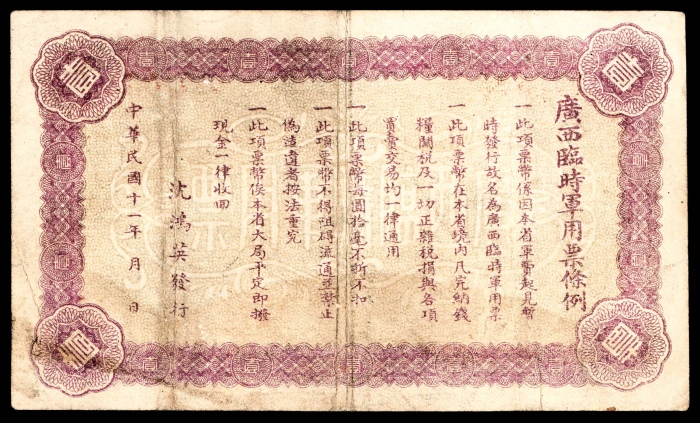 廣西臨時軍用票條例
一此項票幣係因本省軍費起見暫
時發行故名為廣西臨時軍用票
一此項票幣在本省境内凡完納錢
糧關税及一切正雜税捐與各項
買賣交易均一律通用
一此項票幣每圓拾毫不折不扣
一此項票幣不得阻碍流通並禁止
偽造違者按法重究
一此項票幣俟本省大局平定即撥
現金一律收回
沈鴻英發行
中華民國十一年 月 日
壹
壹
圓
圓